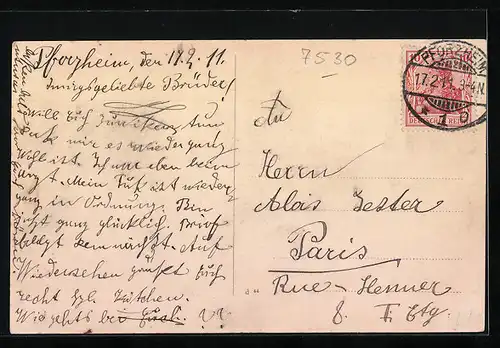 Pforzheim, den 17.2.11.
Innigstgeliebte Brüder!
Will Euch zu wissen tun
daß mir es wieder ganz
Wohl ist. Ich war eben beim
Arzt. Mein Fuß ist wieder
ganz in Ordnung. Bin
jetzt ganz glücklich. Brief
folgt demnächst. Auf
Wiedersehen grüßt Euch
recht hzl.
Wie gehts bei Euch. ??
7530
PFORZHEIM
17.2.11. 3-4N.
* 1 c
DEUTSCHES REICH
An
Herrn
Alois Zester
Paris
Rue-Henner
8. I. Etg.